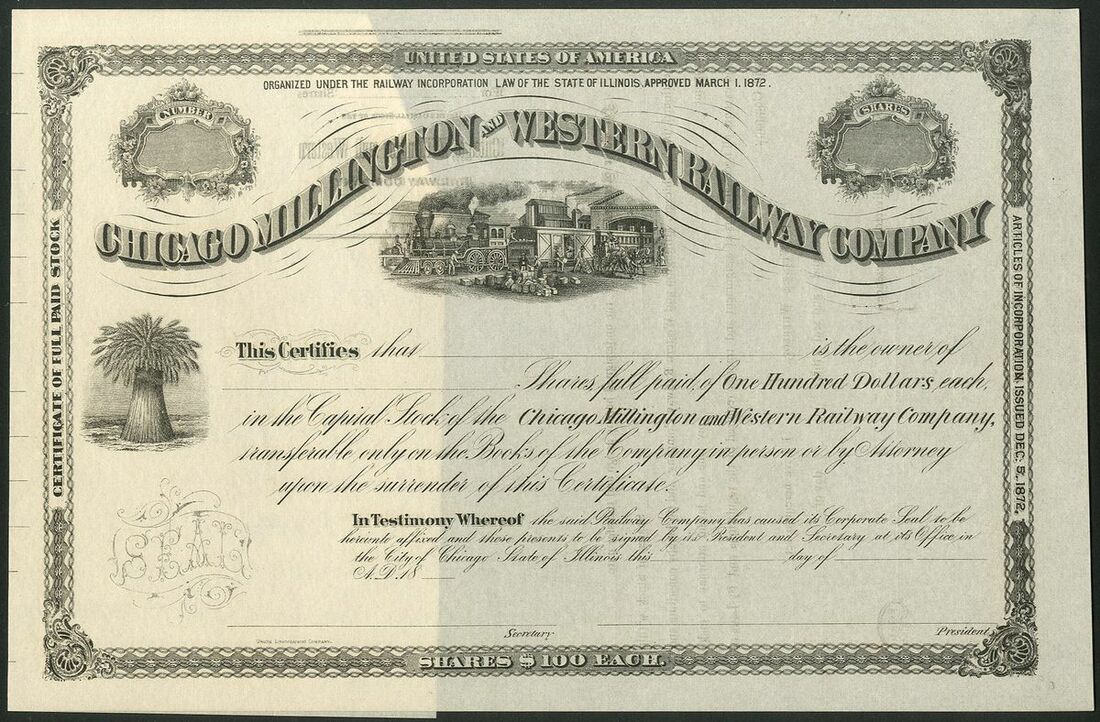 UNITED STATES OF AMERICA
ORGANIZED UNDER THE RAILWAY INCORPORATION LAW OF THE STATE OF ILLINOIS, APPROVED MARCH 1. 1872.
NUMBER
SHARES
CHICAGO MILLINGTON AND WESTERN RAILWAY COMPANY
CERTIFICATE OF FULL PAID STOCK
ARTICLES OF INCORPORATION ISSUED DEC. 5, 1872.
This Certifies that is the owner of
Shares, full paid, of One Hundred Dollars, each,
in the Capital Stock of the Chicago Millington and Western Railway Company,
transferable only on the Books of the Company in person or by Attorney
upon the surrender of this Certificate.
In Testimony Whereof the said Railway Company has caused its Corporate Seal to be
hereunto affixed and these presents to be signed by its President and Secretary at its Office in
the City of Chicago State of Illinois this day of
A.D. 18
SEAL
Secretary
President
SHARES $100 EACH.